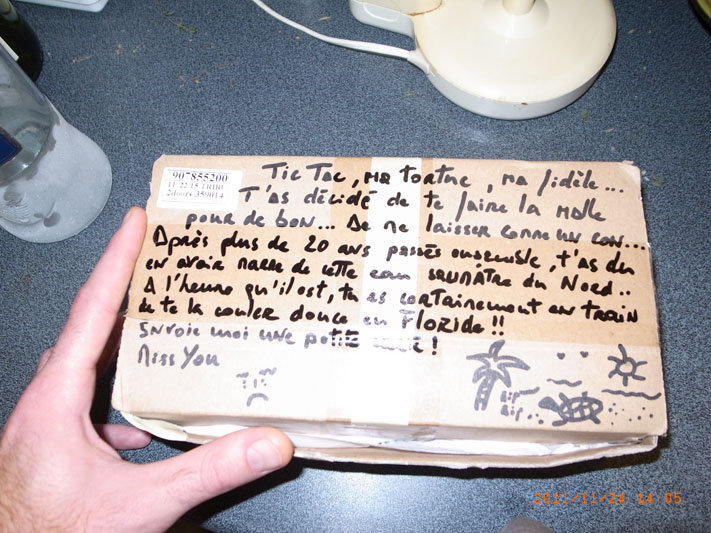 907855200
Tic Tac, ma tortue, ma fidèle...
T'as décidé de te faire la malle
pour de bon... De me laisser comme un con....
Après plus de 20 ans passés ensemble, t'as du
en avoir marre de cette eau saumâtre du Nord..
A l'heure qu'il est, tu es certainement en train
de te la couler douce en Floride!!
Envoie moi une petite !
Miss You
2011/11/24 14:05